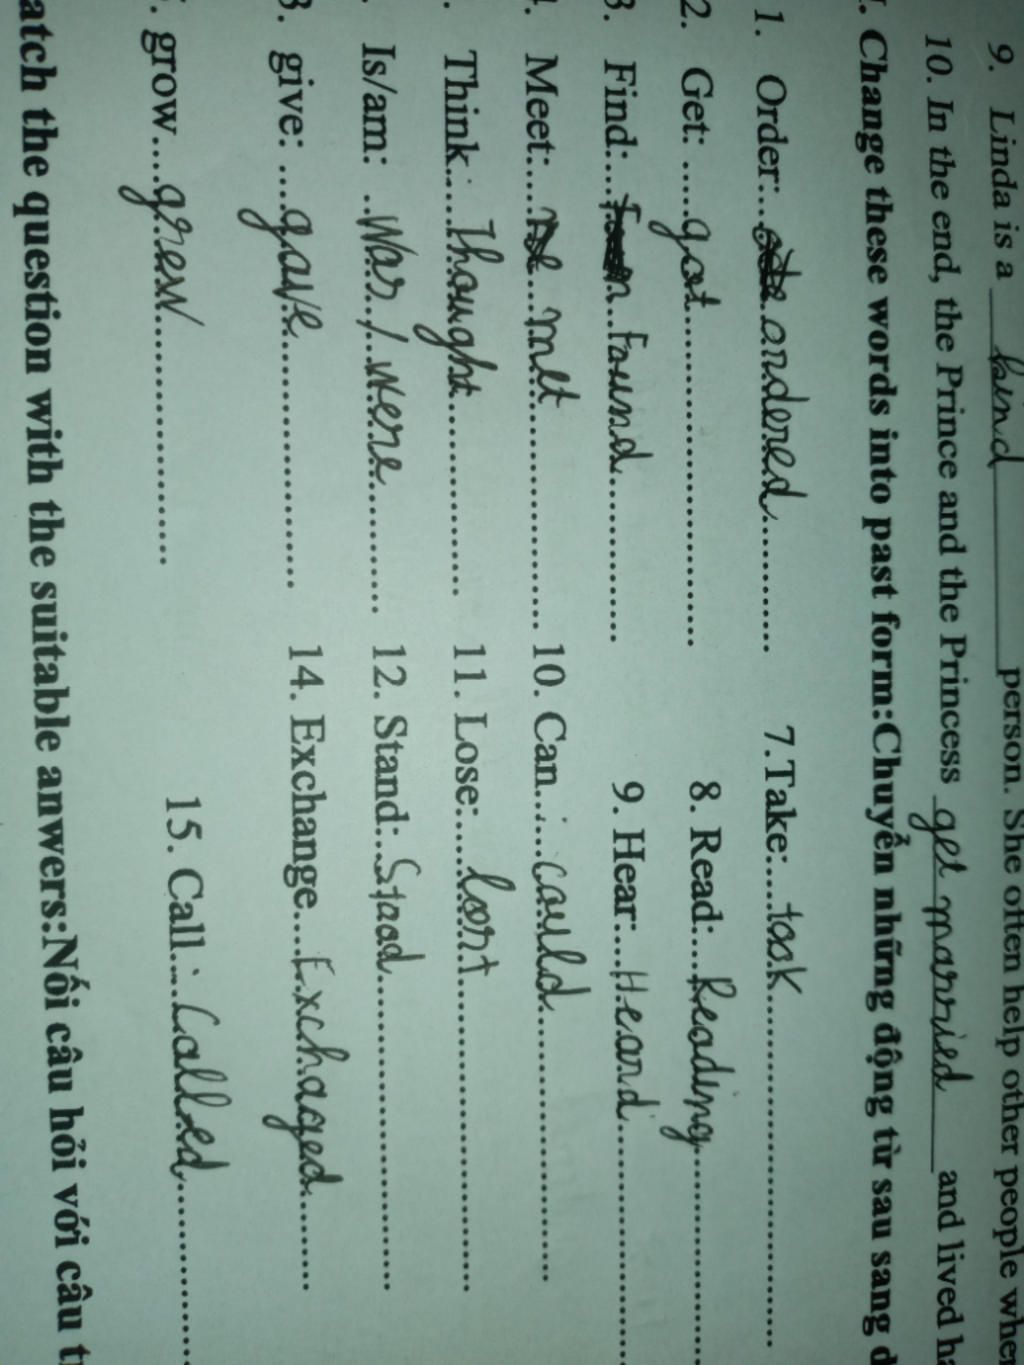 9. Linda is a kind person. She often help other people
10. In the end, the Prince and the Princess get married and lived
Change these words into past form:Chuyển những động từ sau sang
1. Order:... ordered 7.Take:... took
2. Get: ... got 8. Read:... Reading
3. Find:... Found 9. Hear:... Heard
Meet:... met 10. Can...:... could
Think:... Thought 11. Lose:... lort
Is/am: ... Was / were 12. Stand:... Stood
3. give: ... gave 14. Exchange.... Exchaged
grow.... grew 15. Call...:... Called
atch the question with the suitable anwers:Nối câu hỏi với câu